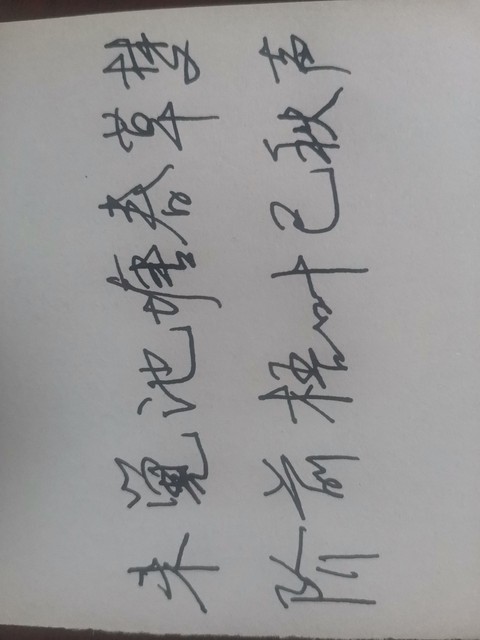 未觉池塘春草梦
阶前梧叶已秋声